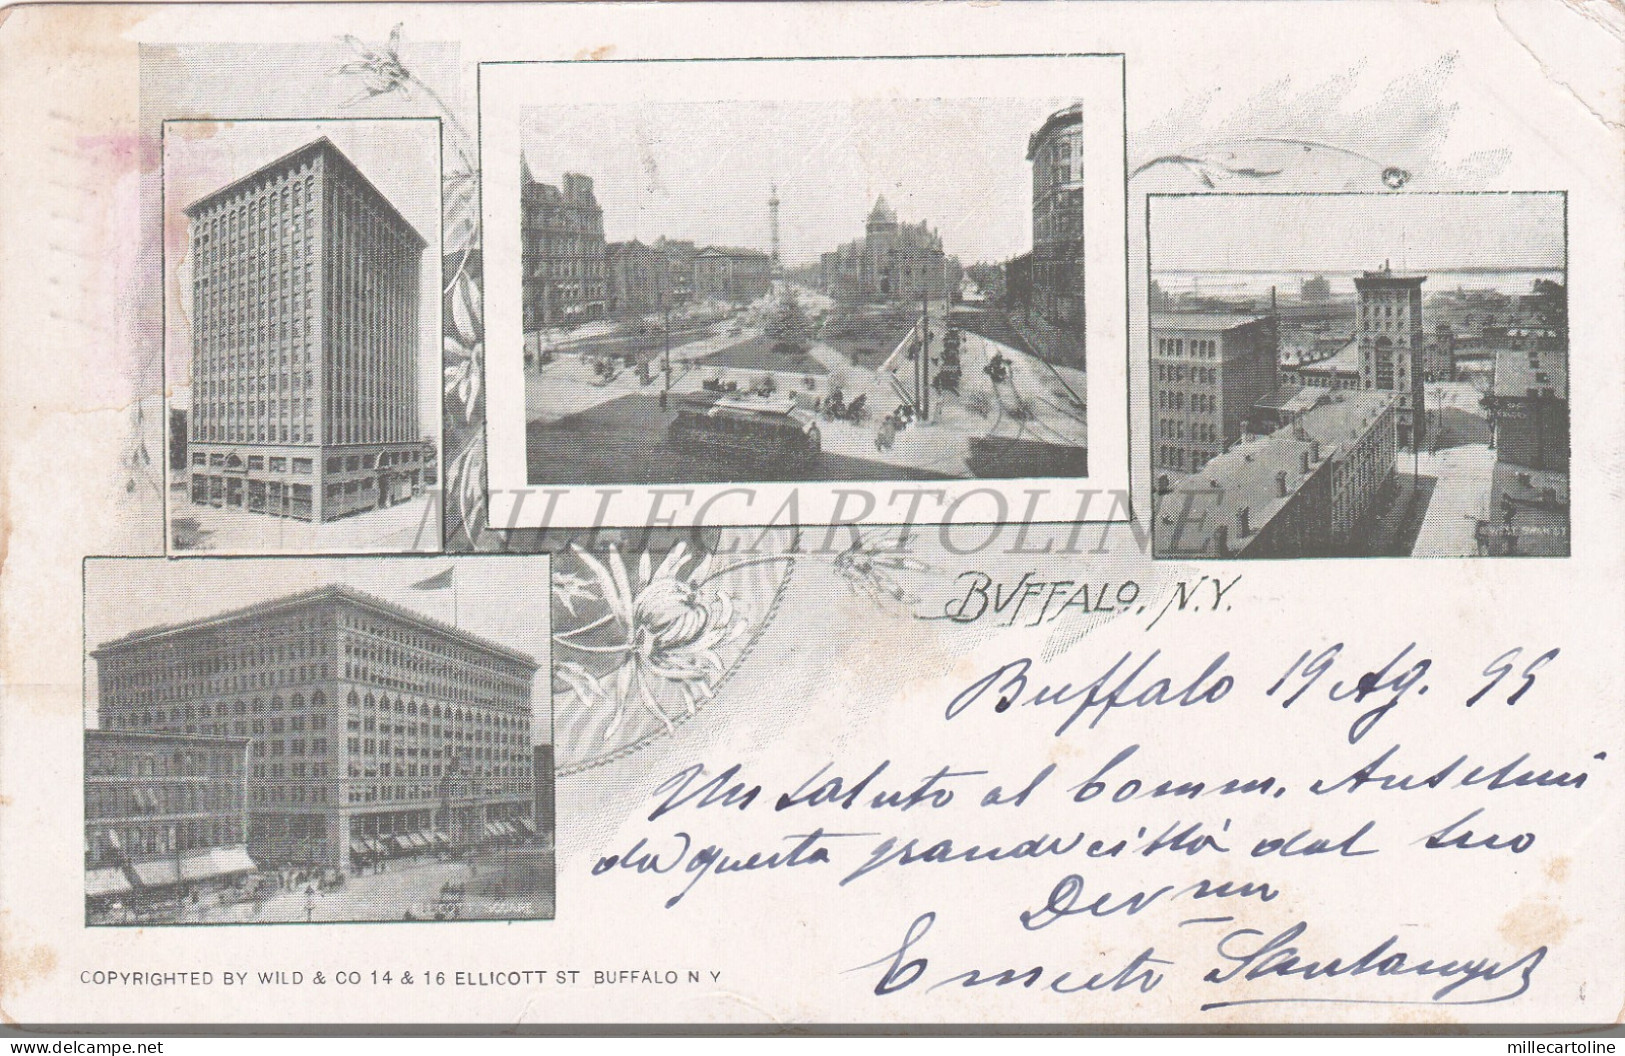 MILLECARTOLINE
BUFFALO, N.Y.
Buffalo 19 Ag. 99
Un saluto al Comm. Anselmi
da questa grande città dal suo
Dev mo
Ernesto Santangelo
COPYRIGHTED BY WILD & CO 14 & 16 ELLICOTT ST BUFFALO N Y
delcampe.net
millecartoline